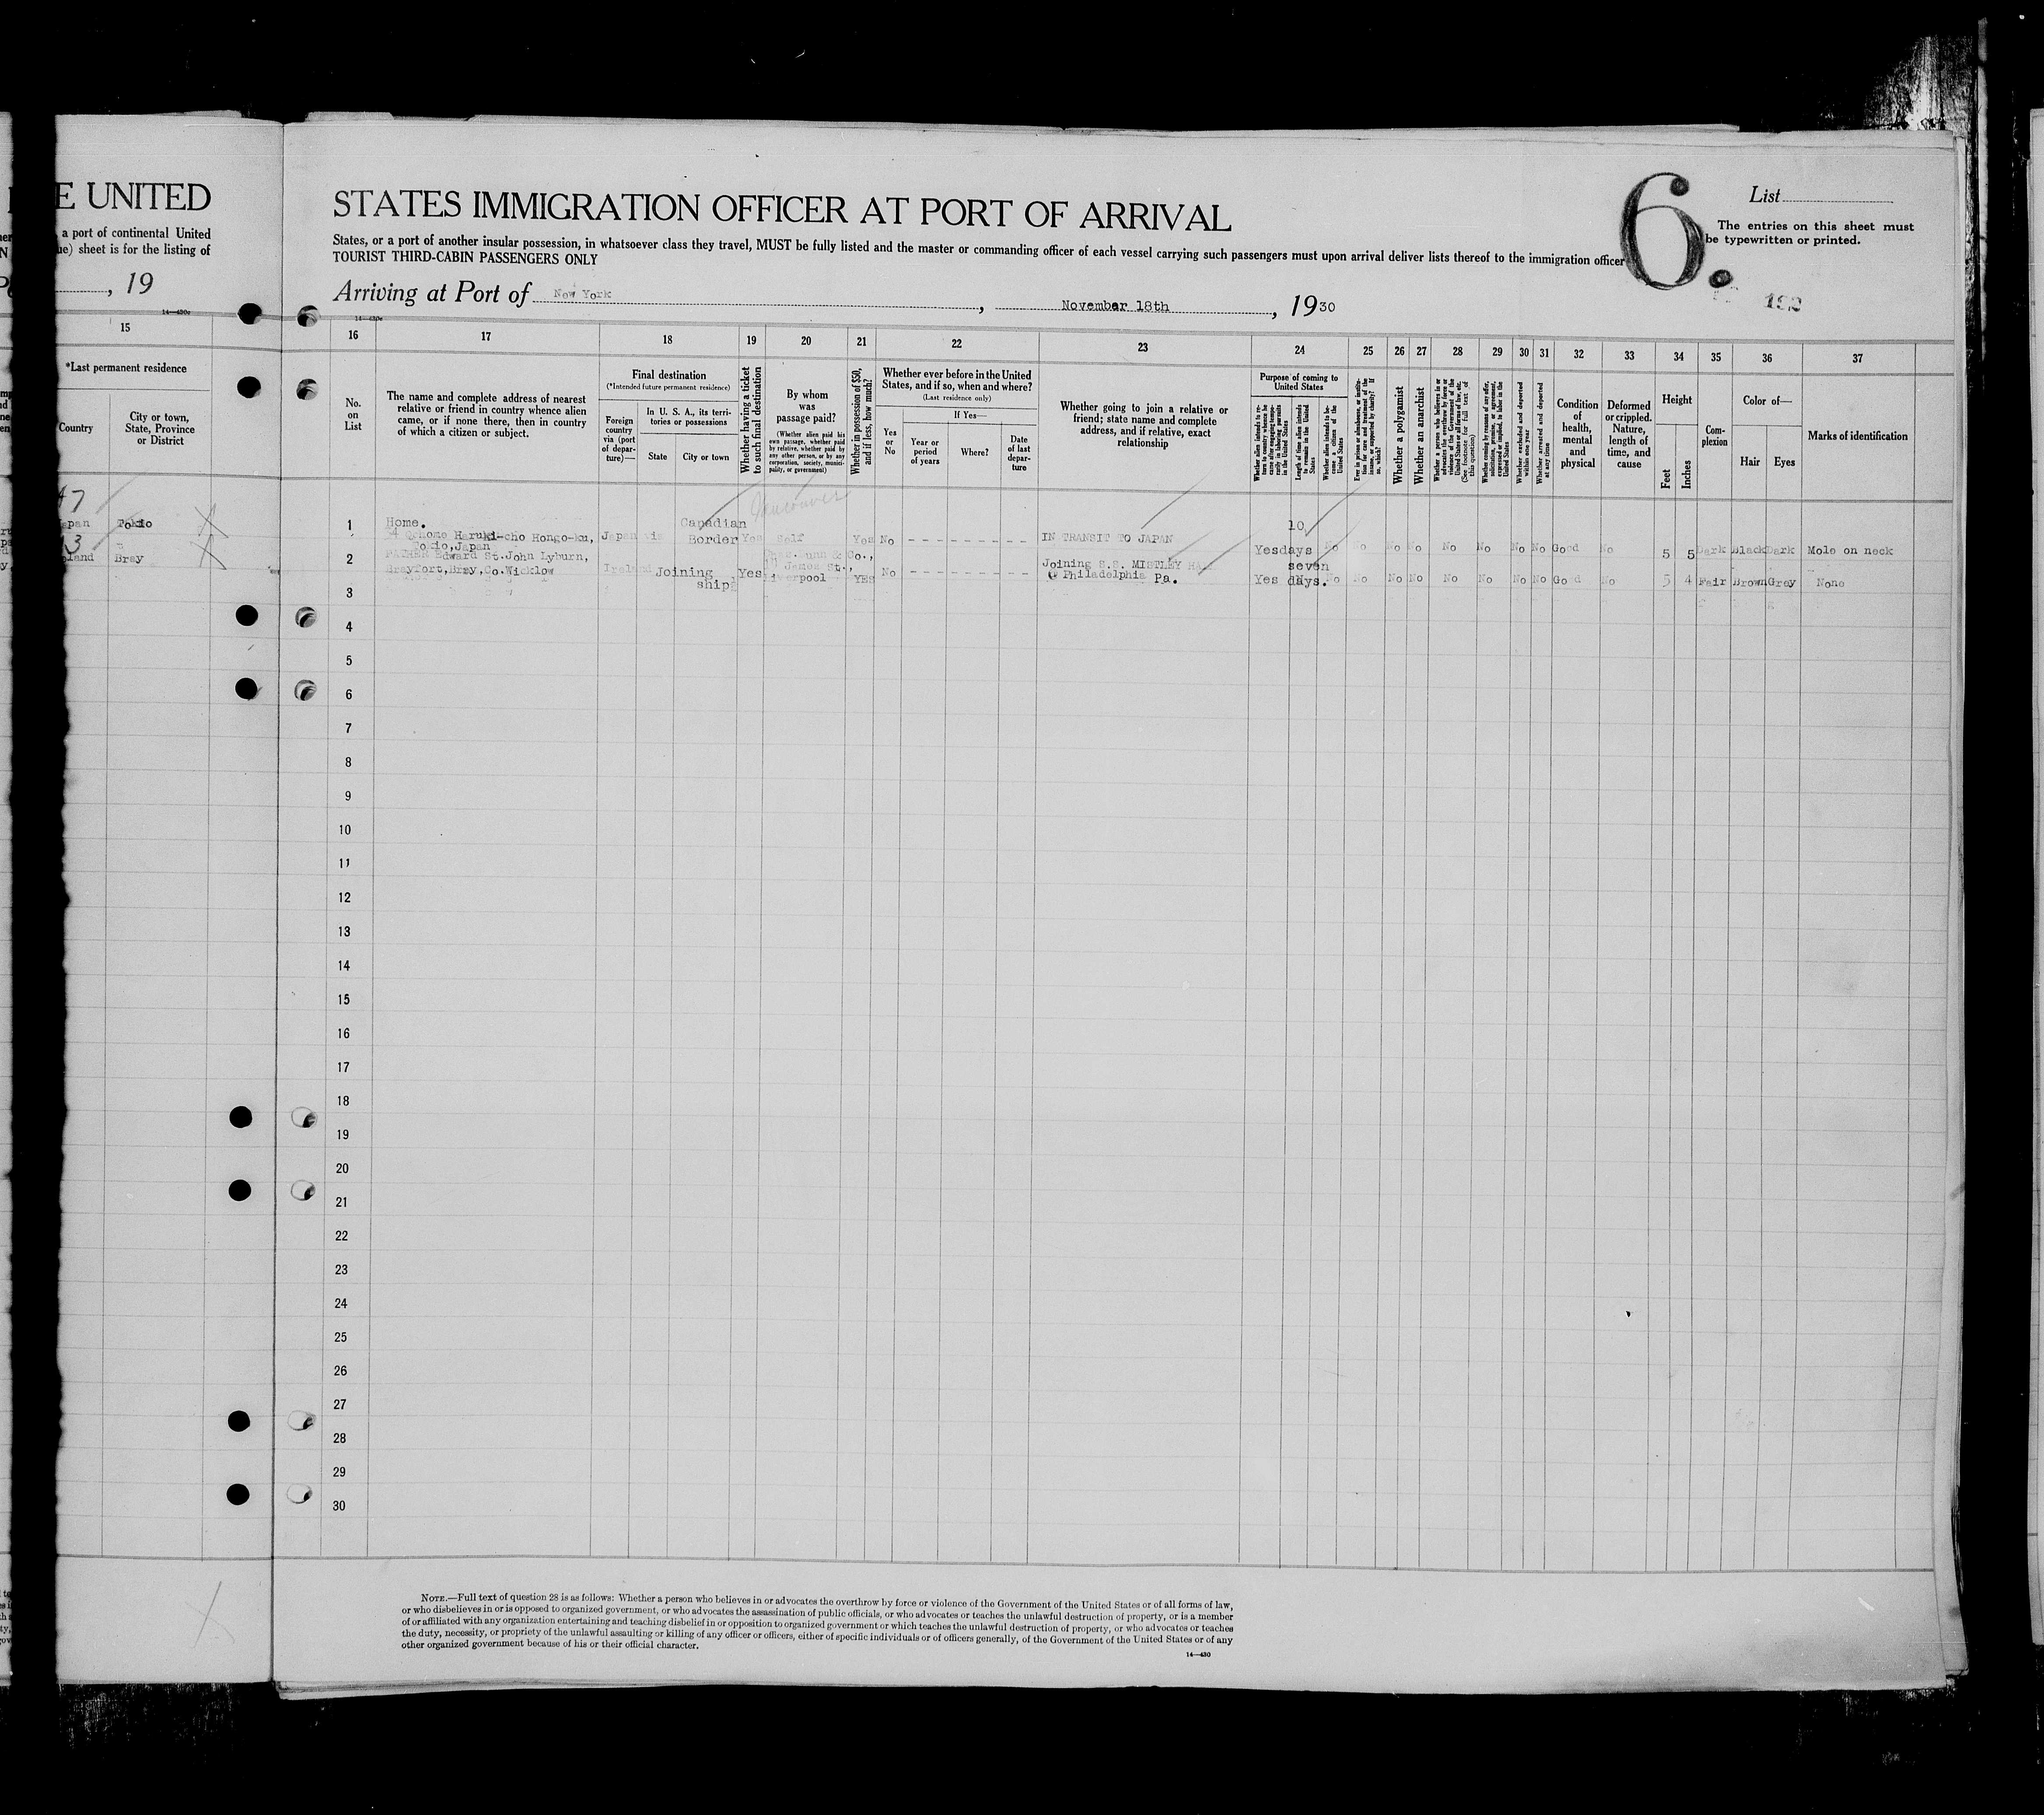 E UNITED
a port of continental United
ue) sheet is for the listing of
, 19
14—430c
15
*Last permanent residence
Country
City or town,
State, Province
or District
Tokio
Bray
STATES IMMIGRATION OFFICER AT PORT OF ARRIVAL
States, or a port of another insular possession, in whatsoever class they travel, MUST be fully listed and the master or commanding officer of each vessel carrying such passengers must upon arrival deliver lists thereof to the immigration officer
TOURIST THIRD-CABIN PASSENGERS ONLY
Arriving at Port of New York, November 18th, 1930
6.
List
The entries on this sheet must
be typewritten or printed.
192
16 17 18 19 20 21 22 23 24 25 26 27 28 29 30 31 32 33 34 35 36 37
No.
on
List
The name and complete address of nearest
relative or friend in country whence alien
came, or if none there, then in country
of which a citizen or subject.
Final destination
(*Intended future permanent residence)
Foreign
country
via (port
of depar-
ture)—
In U. S. A., its terri-
tories or possessions
State
City or town
Whether having a ticket
to such final destination
By whom
was
passage paid?
(Whether alien paid his
own passage, whether paid
by relative, whether paid by
any other person, or by any
corporation, society, munici-
pality, or government)
Whether in possession of $50,
and if less, how much?
Whether ever before in the United
States, and if so, when and where?
(Last residence only)
Yes
or
No
If Yes—
Year or
period
of years
Where?
Date
of last
depar-
ture
Whether going to join a relative or
friend; state name and complete
address, and if relative, exact
relationship
Purpose of coming to
United States
Length of time alien intends
to remain in the United
States
Whether alien intends to be-
come a citizen of the
United States
Whether a polygamist
Whether an anarchist
Whether excluded and deported
within one year
Whether arrested and deported
at any time
Condition
of
health,
mental
and
physical
Deformed
or crippled.
Nature,
length of
time, and
cause
Height
Feet
Inches
Com-
plexion
Color of—
Hair
Eyes
Marks of identification
Vancouver
1 Home. Canadian 10
Haruki-cho Hongo-ku, Japan via Border Yes Self Yes No IN TRANSIT TO JAPAN Yes days No No No No No No No No Good No 5 5 Dark Black Dark Mole on neck
Tokio, Japan
2 FATHER Edward St.John Lyburn, Co., Joining S.S. MISTLEY HALL seven
Brayfort, Bray, Co. Wicklow Ireland Joining Yes James St., YES No @ Philadelphia Pa. Yes days. No No No No No No No No Good No 5 4 Fair Brown Grey None
ship Liverpool
3
4
5
6
7
8
9
10
11
12
13
14
15
16
17
18
19
20
21
22
23
24
25
26
27
28
29
30
NOTE.—Full text of question 28 is as follows: Whether a person who believes in or advocates the overthrow by force or violence of the Government of the United States or of all forms of law,
or who disbelieves in or is opposed to organized government, or who advocates the assassination of public officials, or who advocates or teaches the unlawful destruction of property, or is a member
of or affiliated with any organization entertaining and teaching disbelief in or opposition to organized government or which teaches the unlawful destruction of property, or who advocates or teaches
the duty, necessity, or propriety of the unlawful assaulting or killing of any officer or officers, either of specific individuals or of officers generally, of the Government of the United States or of any
other organized government because of his or their official character.
14—430